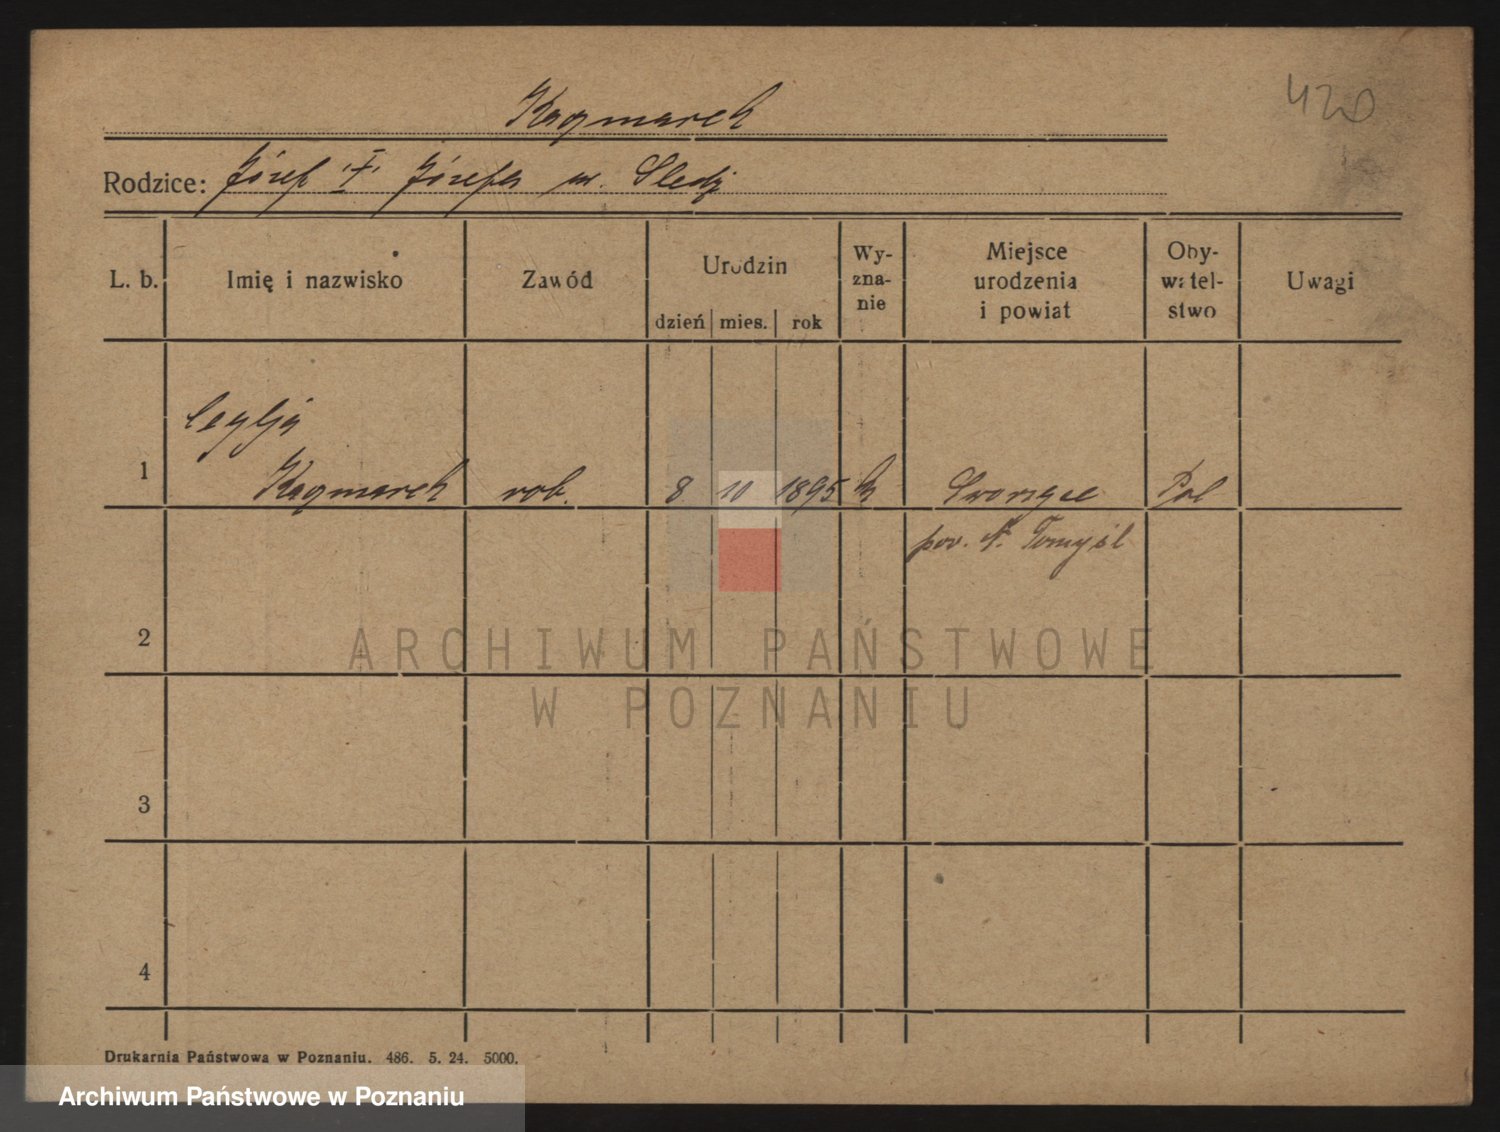 420
Kaczmarek
Rodzice: Józef "I" Józefa ur. Sledź
L. b. Imię i nazwisko Zawód Urodzin dzień mies. rok Wy-zna-nie Miejsce urodzenia i powiat Oby-watel-stwo Uwagi
Cecylja
1 Kaczmarek rob. 8 10 1895 k Pol
pow. N. Tomyśl
2
ARCHIWUM PAŃSTWOWE
W POZNANIU
3
4
Drukarnia Państwowa w Poznaniu. 486. 5. 24. 5000.
Archiwum Państwowe w Poznaniu